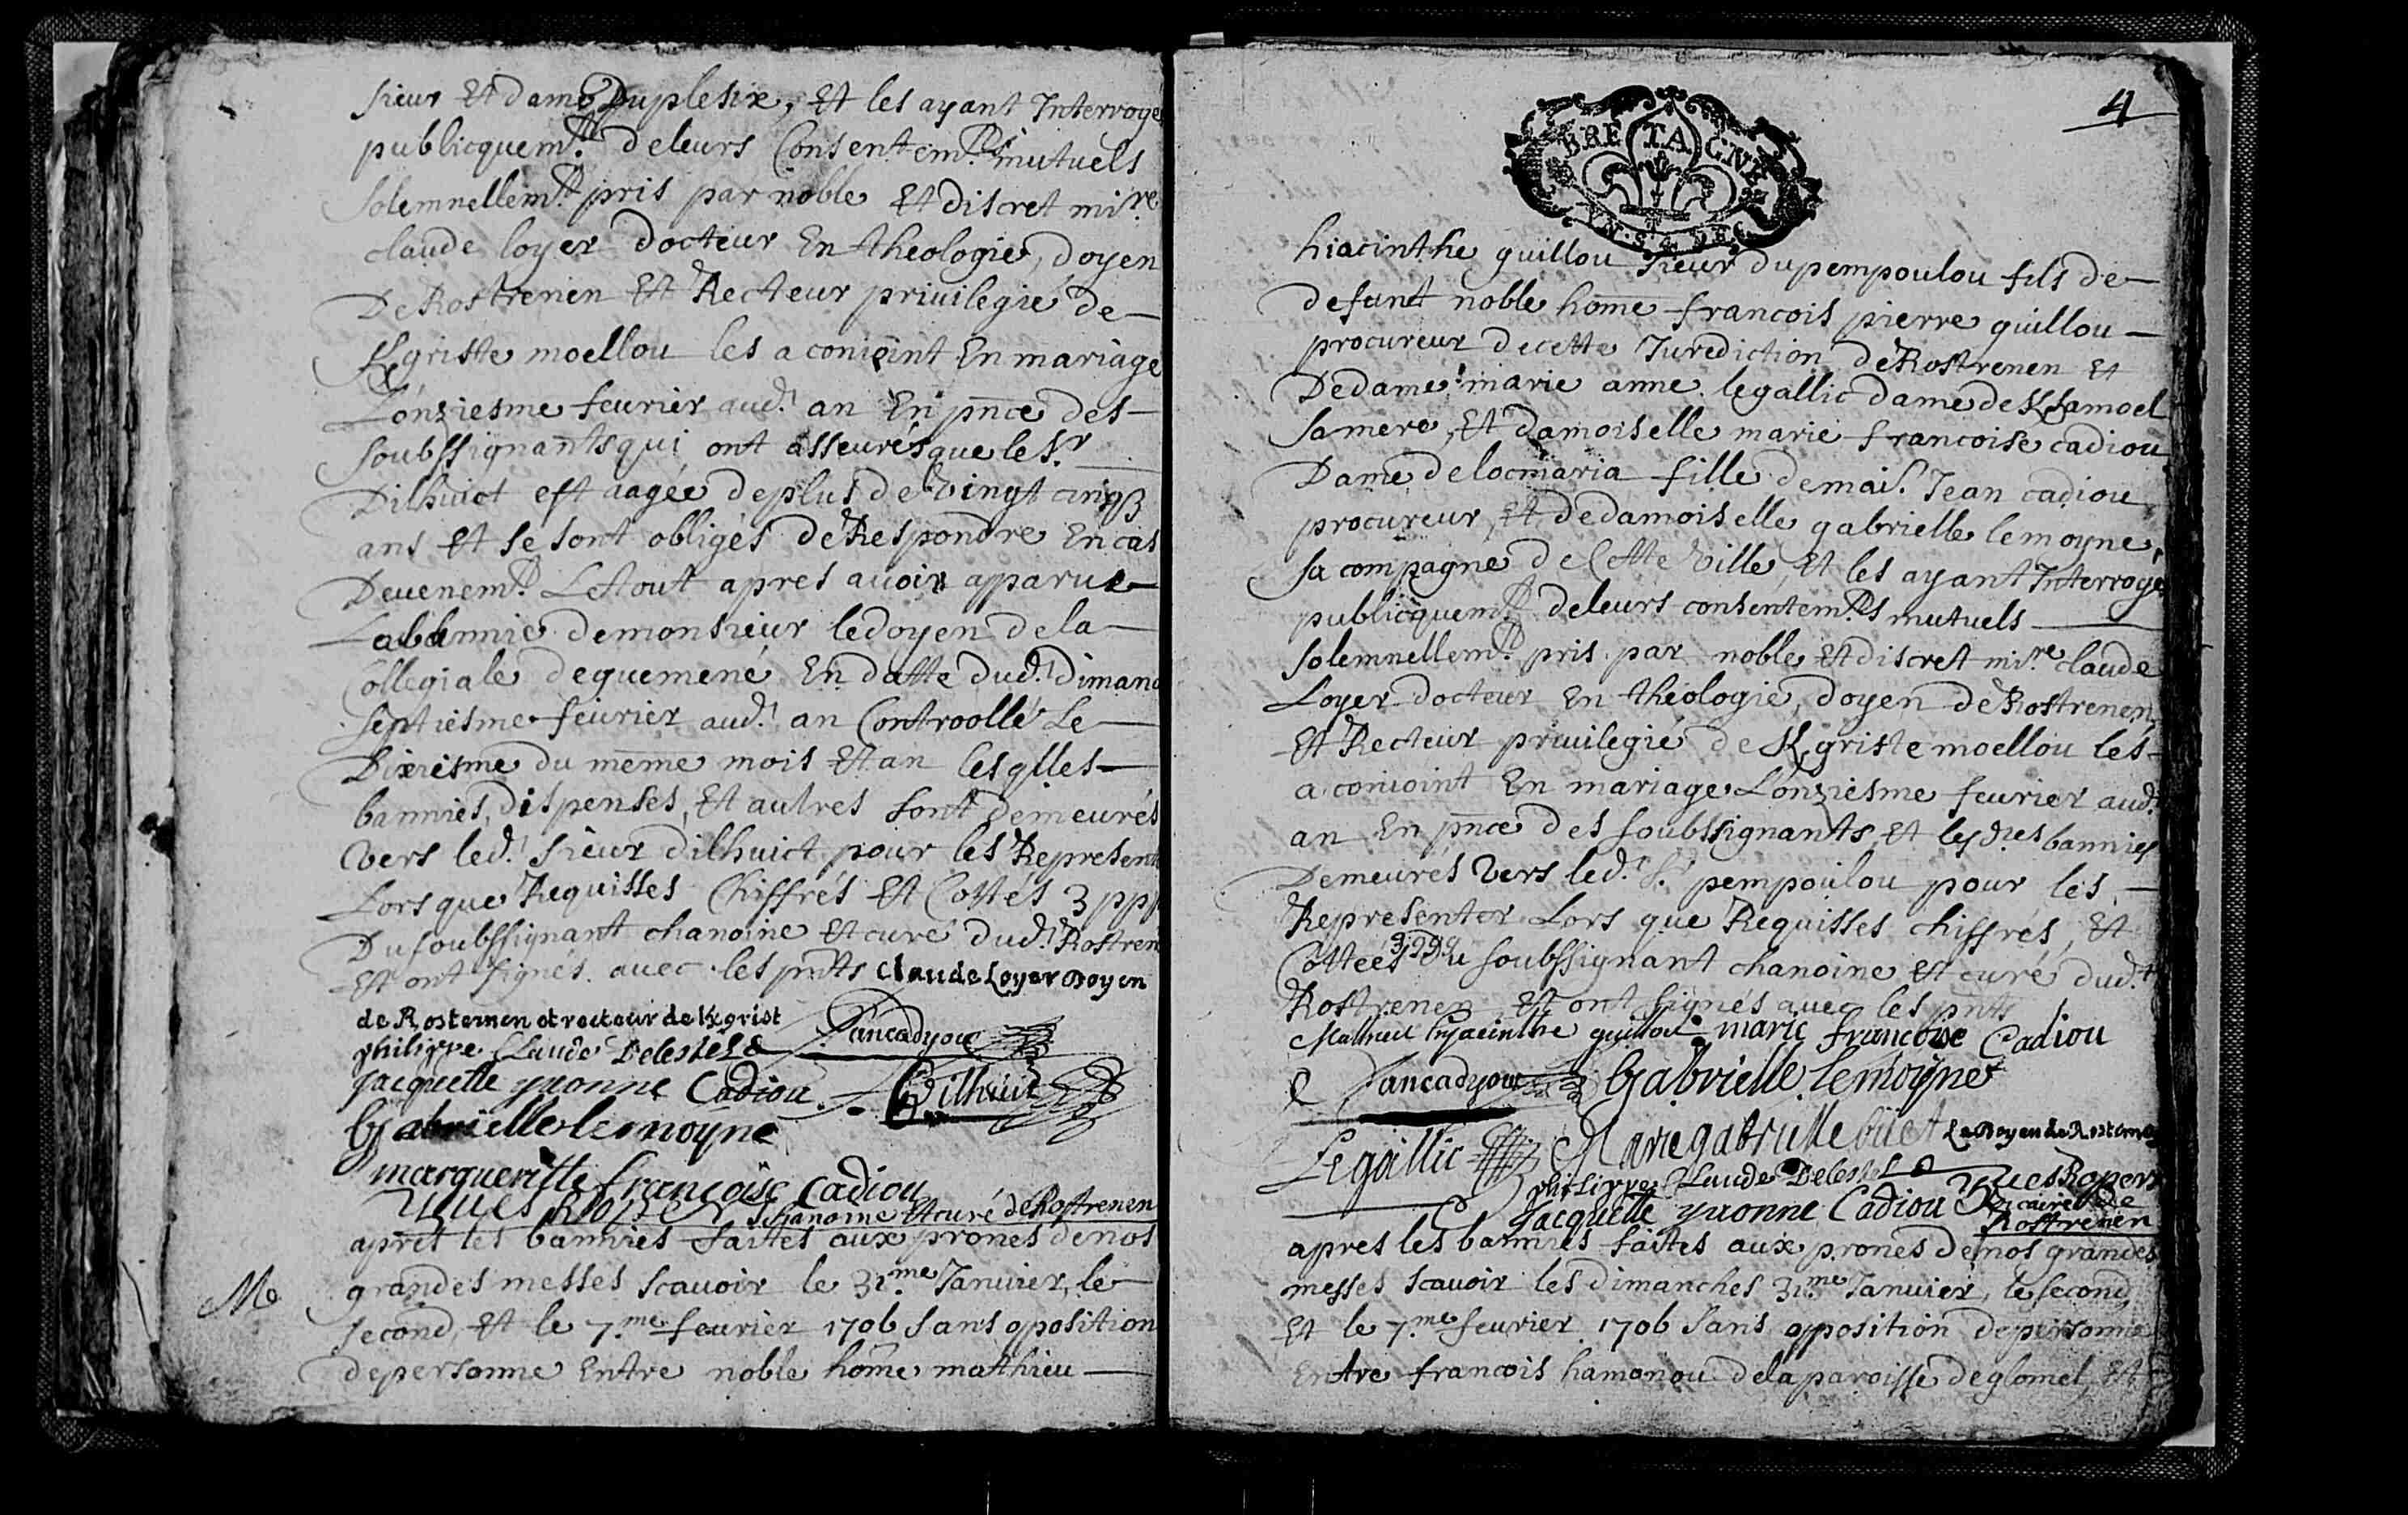 sieur Et dame Duplesix, Et les ayant Interrogé
publicquemt. deleurs Consentemts. mutuels
solemnellemt. pris par noble Et discret misre.
claude loyer docteur En theologie, doyen
De Rostrenen Et Recteur privilegié de
Kgriste moellou les a conioint En mariage
L'onziesme feurier aud.t an En pnce des
soubssignants qui ont asseurés que le Sr.
Dilhuict est aagée deplus de Vingt cinq
ans Et se sont obligés de Respondre En cas
Deuenemt. Le tout apres auoir apparu
La bannie demonsieur ledoyen dela
Collegiale deguemené En datte dud.t Dimanc
septiesme feurier aud.t an Controollé Le
Dixiesme du mesme mois Et an lesqlles
bannies, dispenses, Et autres sont demeurés
Vers led.t sieur dilhuict pour les Represent
Lors que Requisses Chiffrés Et Cottés 3 ppp
Du soubssignant chanoine Et curé dud.t Rostren
Et ont signés avec les pnts Claude Loyer Doyen
de Rosternen et recteur de Kgrist
philippe Claude Delestel
Jan cadyou
Jacquette yuonne Cadiou
Dilhuict
Gabrielle lemoyne
margueritte françoise Cadiou
Yues Roper chanoine Et curé de Rostrenen
apres les bannies faites aux prones denos
M grandes messes scauoir le 31.me Januier, le
second, Et le 7.me feurier 1706 sans oposition
depersonne Entre noble home mathieu
4
BRETAGNE
hiacinthe guillou sieur dupempoulou fils de
defunt noble home francois pierre guillou
procureur decette Jurediction de Rostrenen Et
De dame marie anne legallic dame de Ksamoel
sa mere, Et damoiselle marie francoise cadiou
Dame delocmaria fille demais. Jean cadiou
procureur, Et de damoiselle gabrielle lemoyne,
sa compagne de Cette Ville, Et les ayant Interrogé
publicquemt. deleurs consentemts mutuels
solemnellemt. pris par noble Et discret misre. claude
Loyer docteur En theologie, doyen de Rostrenen
Et Recteur priuilegié de Kgriste moellou les
a conioint En mariage L'onziesme feurier aud.t
an En pnce des soubssignants, Et lesd.tes bannies
Demeurés Vers led.t Sr. pempoulou pour les
Representer Lors que Requisses chiffrés, Et
Cottées Du soubssignant chanoine Et curé dud.t
Rostrenen Et ont signés avec les pnts
Mathieu hyacinthe guillou marie francoise Cadiou
Jan cadyou Gabrielle lemoyne
Legallic Marie gabrielle Le Doyen de Rosternen
philippe Claude Delestel Yues Roper
Jacquette yuonne Cadiou Rostrenen
apres les bannies faites aux prones denos grandes
messes scauoir les dimanches 31.me Januier, le second,
Et le 7.me feurier 1706 sans oposition depersonne
Entre francois hamonou dela paroisse deglomel, Et